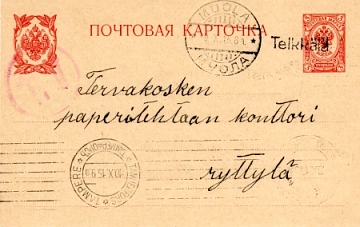 ПОЧТОВАЯ КАРТОЧКА
MUOLA
МУОЛА
Teikkälä
Tervakosken
paperitehtaan konttori
ryttylä
TAMPERE